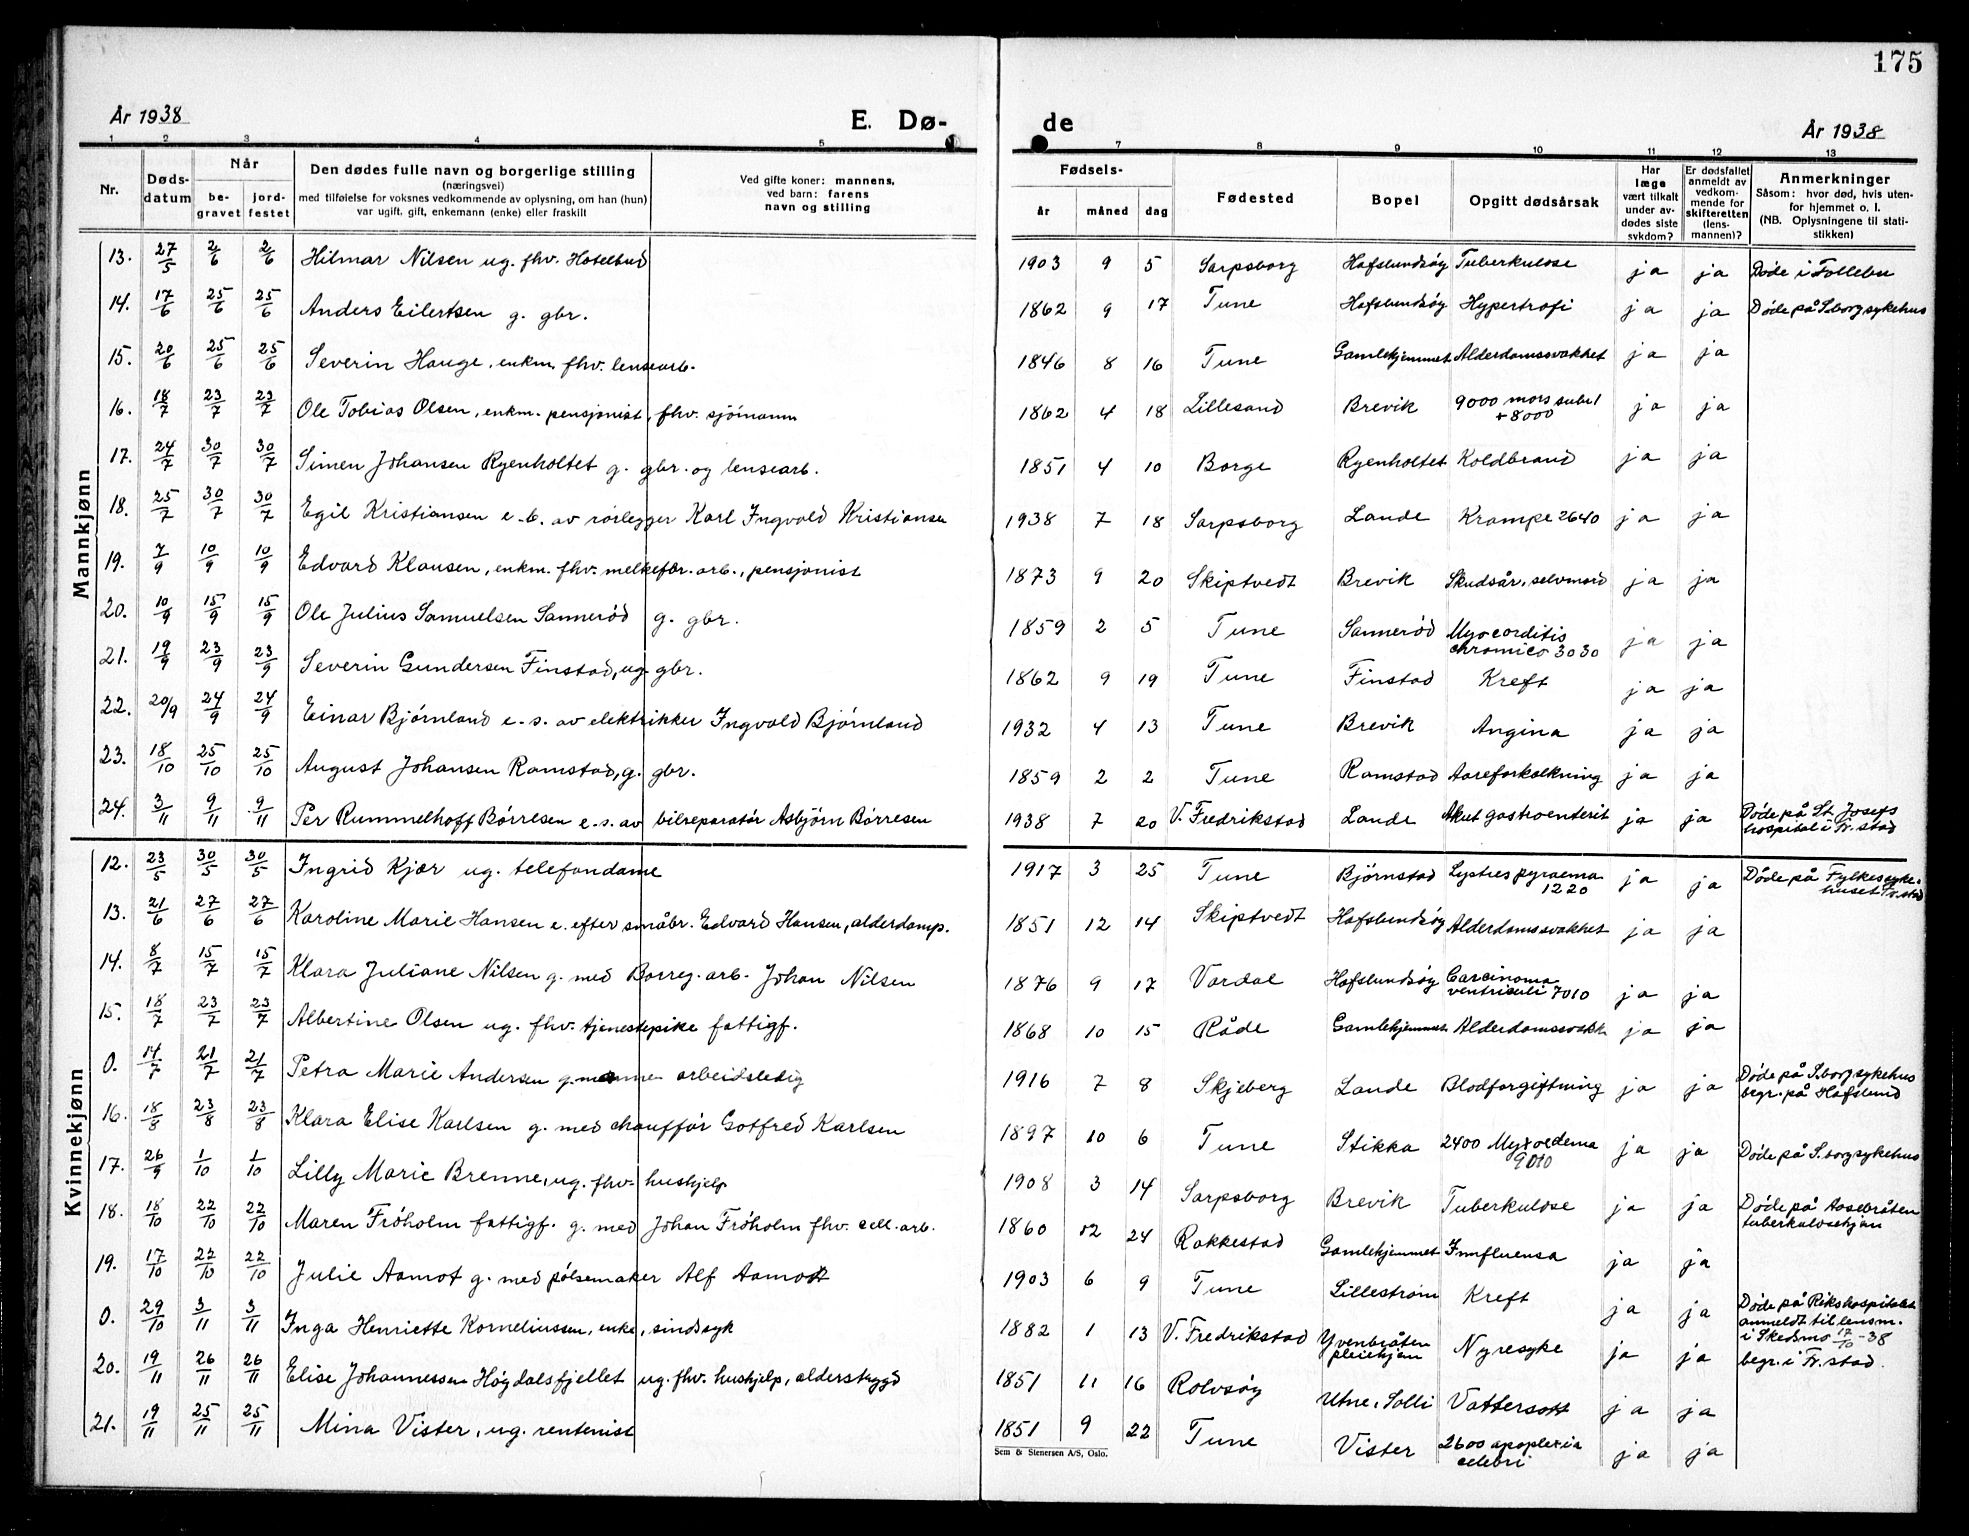 175
År 1938
E. Dø-
de
År 1938
1 2 3 4 5 7 8 9 10 11 12 13
Nr.
Døds-
datum
Når
be-
gravet
jord-
festet
Den dødes fulle navn og borgerlige stilling
(næringsvei)
med tilføielse for voksnes vedkommende av oplysning, om han (hun)
var ugift, gift, enkemann (enke) eller fraskilt
Ved gifte koner: mannens,
ved barn: farens
navn og stilling
Fødsels-
år måned dag
Fødested
Bopel
Opgitt dødsårsak
Har
læge
vært tilkalt
under av-
dødes siste
sykdom?
Er dødsfallet
anmeldt av
vedkom-
mende for
skifteretten
(lens-
mannen)?
Anmerkninger
Såsom: hvor død, hvis uten-
for hjemmet o. l.
(NB. Oplysningene til stati-
stikken)
Mannkjønn
13. 27/5 2/6 2/6 Hilmar Nilsen ug. fhv. Hotelbud 1903 9 5 Sarpsborg Hafslundsøy Tuberkulose ja ja Døde i Follebu
14. 17/6 25/6 25/6 Anders Eilertsen g. gbr. 1862 9 17 Tune Hafslundsøy Hypertrofi ja ja Døde på S.borg sykehus
15. 20/6 25/6 25/6 Severin Hauge, enkm. fhv. lensearb. 1846 8 16 Tune Gamlehjemmet Alderdomssvakhet ja ja
16. 18/7 23/7 23/7 Ole Tobias Olsen, enkm. pensjonist, fhv. sjömann 1862 4 18 Lillesand Brevik 9000 mors subit
+8000 ja ja
17. 24/7 30/7 30/7 Simen Johansen Ryenholtet g. gbr. og lensearb. 1851 4 10 Borge Ryenholtet Koldbrand ja ja
18. 25/7 30/7 30/7 Egil Kristiansen e.b. av rörlegger Karl Ingvald Kristiansen 1938 7 18 Sarpsborg Lande Krampe 2640 ja ja
19. 7/9 10/9 10/9 Edvard Klausen, enkm. fhv. melkefor. arb., pensjonist 1873 9 20 Skiptvedt Brevik Skudsår, selvmord ja ja
20. 10/9 15/9 15/9 Ole Julius Samuelsen Sannerød g. gbr. 1859 2 5 Tune Sannerød Myocorditis
chronico 3030 ja ja
21. 19/9 23/9 23/9 Severin Gundersen Finstad, ug. gbr. 1862 9 19 Tune Finstad Kreft ja ja
22. 20/9 24/9 24/9 Einar Bjørnland e. s. av elektrikker Ingvald Bjørnland 1932 4 13 Tune Brevik Angina ja ja
23. 18/10 25/10 25/10 August Johansen Ramstad, g. gbr. 1859 2 2 Tune Ramstad Aareforkalkning ja ja
24. 3/11 9/11 9/11 Per Rummelhoff Børresen e.s. av bilreparatør Asbjørn Børresen 1938 7 20 V. Fredrikstad Lande Akut gastroenterit ja ja Døde på St. Josefs
hospital i Fr.stad
Kvinnekjønn
12. 23/5 30/5 30/5 Ingrid Kjær ug. telefondame 1917 3 25 Tune Bjørnstad pyraema
1220 ja ja Døde på Fylkessyke-
huset Fr.stad
13. 21/6 27/6 27/6 Karoline Marie Hansen e. efter småbr. Edvard Hansen, alderdomp. 1851 12 14 Skiptvedt Hafslundsøy Alderdomssvakhet ja ja
14. 8/7 15/7 15/7 Klara Juliane Nilsen g. med Borreg. arb. Johan Nilsen 1876 9 17 Vardal Hafslundsøy Carcinoma
ventriculi 7010 ja ja
15. 18/7 23/7 23/7 Albertine Olsen ug. fhv. tjenestepike fattigf. 1868 10 15 Råde Gamlehjemmet Alderdomssvakk ja ja
0. 14/7 21/7 21/7 Petra Marie Andersen g. arbeidsledig 1916 7 8 Skjeberg Lande Blodforgiftning ja ja Døde på S.borg sykehus
begr. på Hafslund
16. 18/8 23/8 23/8 Klara Elise Karlsen g. med chauffør Gotfred Karlsen 1897 10 6 Tune Stikka 2400 Myxoedema
9010 ja ja Døde på S.borg sykehus
17. 26/9 1/10 1/10 Lilly Marie Brenne, ug. fhv. hushjelp 1908 3 14 Sarpsborg Brevik Tuberkulose ja ja Døde på Aasebråten
tuberkulosehjem
18. 18/10 22/10 22/10 Maren Frøholm fattigf. g. med Johan Frøholm fhv. cell. arb. 1860 12 24 Rakkestad Gamlehjemmet Innfluensa ja ja
19. 17/10 22/10 22/10 Julie Aamot g. med pølsemaker Alf Aamodt 1903 6 9 Tune Lillestrøm Kreft ja ja Døde på Rikshospitalet
anmeldt til lensm.
i Skedsmo 17/10-38
0. 29/10 3/11 3/11 Inga Henriette Korneliussen, enke, sindssyk 1882 1 13 V. Fredrikstad Yvenbråten
pleiehjem Nyresyke ja ja begr. i Fr.stad.
20. 19/11 26/11 26/11 Elise Johannessen Høgdalsfjellet ug. fhv. hushjelp, alderstrygd 1851 11 16 Rolvsøy Utne, Solli Vattersott ja ja
21. 19/11 25/11 25/11 Mina Vister, ug. rentenist 1851 9 22 Tune Vister 2600 apoplexia
celebri ja ja
Sem & Stenersen A/S, Oslo.